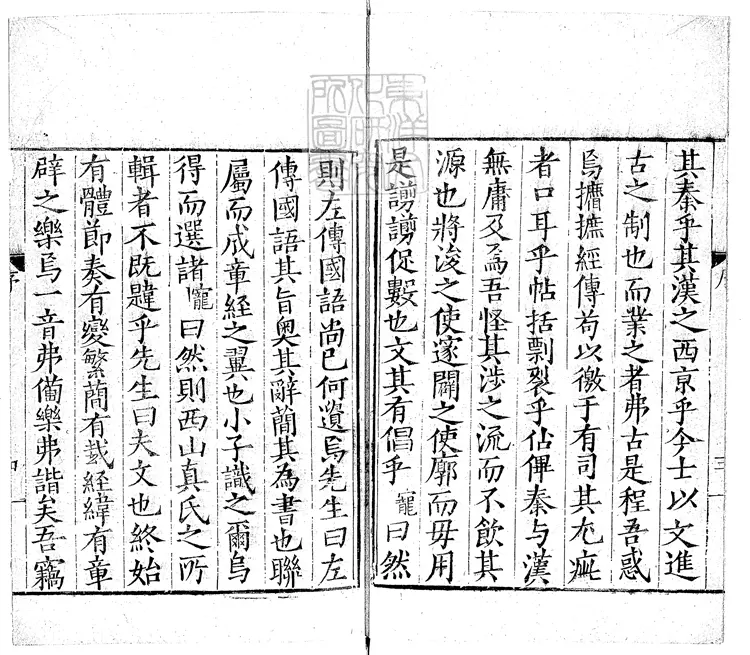 其秦乎其漢之西京乎今士以文進
古之制也而業之者弗古是程吾惑
焉攟摭經傳苟以徼于有司其尢疵
者口耳乎帖括剽裂乎佔俾秦与漢
無庸及焉吾怪其涉之流而不飲其
源也將浚之使邃闢之使廓而毋用
是謭謭促數也文其有倡乎寵曰然
則左傳國語尚已何遺焉先生曰左
傳國語其旨奧其辭簡其為書也聯
屬而成章經之翼也小子識之爾烏
得而選諸寵曰然則西山真氏之所
輯者不既韙乎先生曰夫文也終始
有體節奏有變繁蕳有裁經緯有章
辟之樂焉一音弗備樂弗諧矣吾竊
序
三
序
四